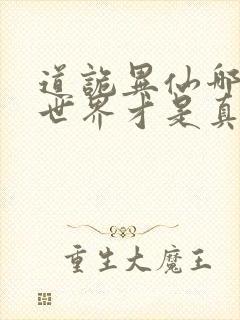 道诡异仙哪
世界才是真
重生大魔王